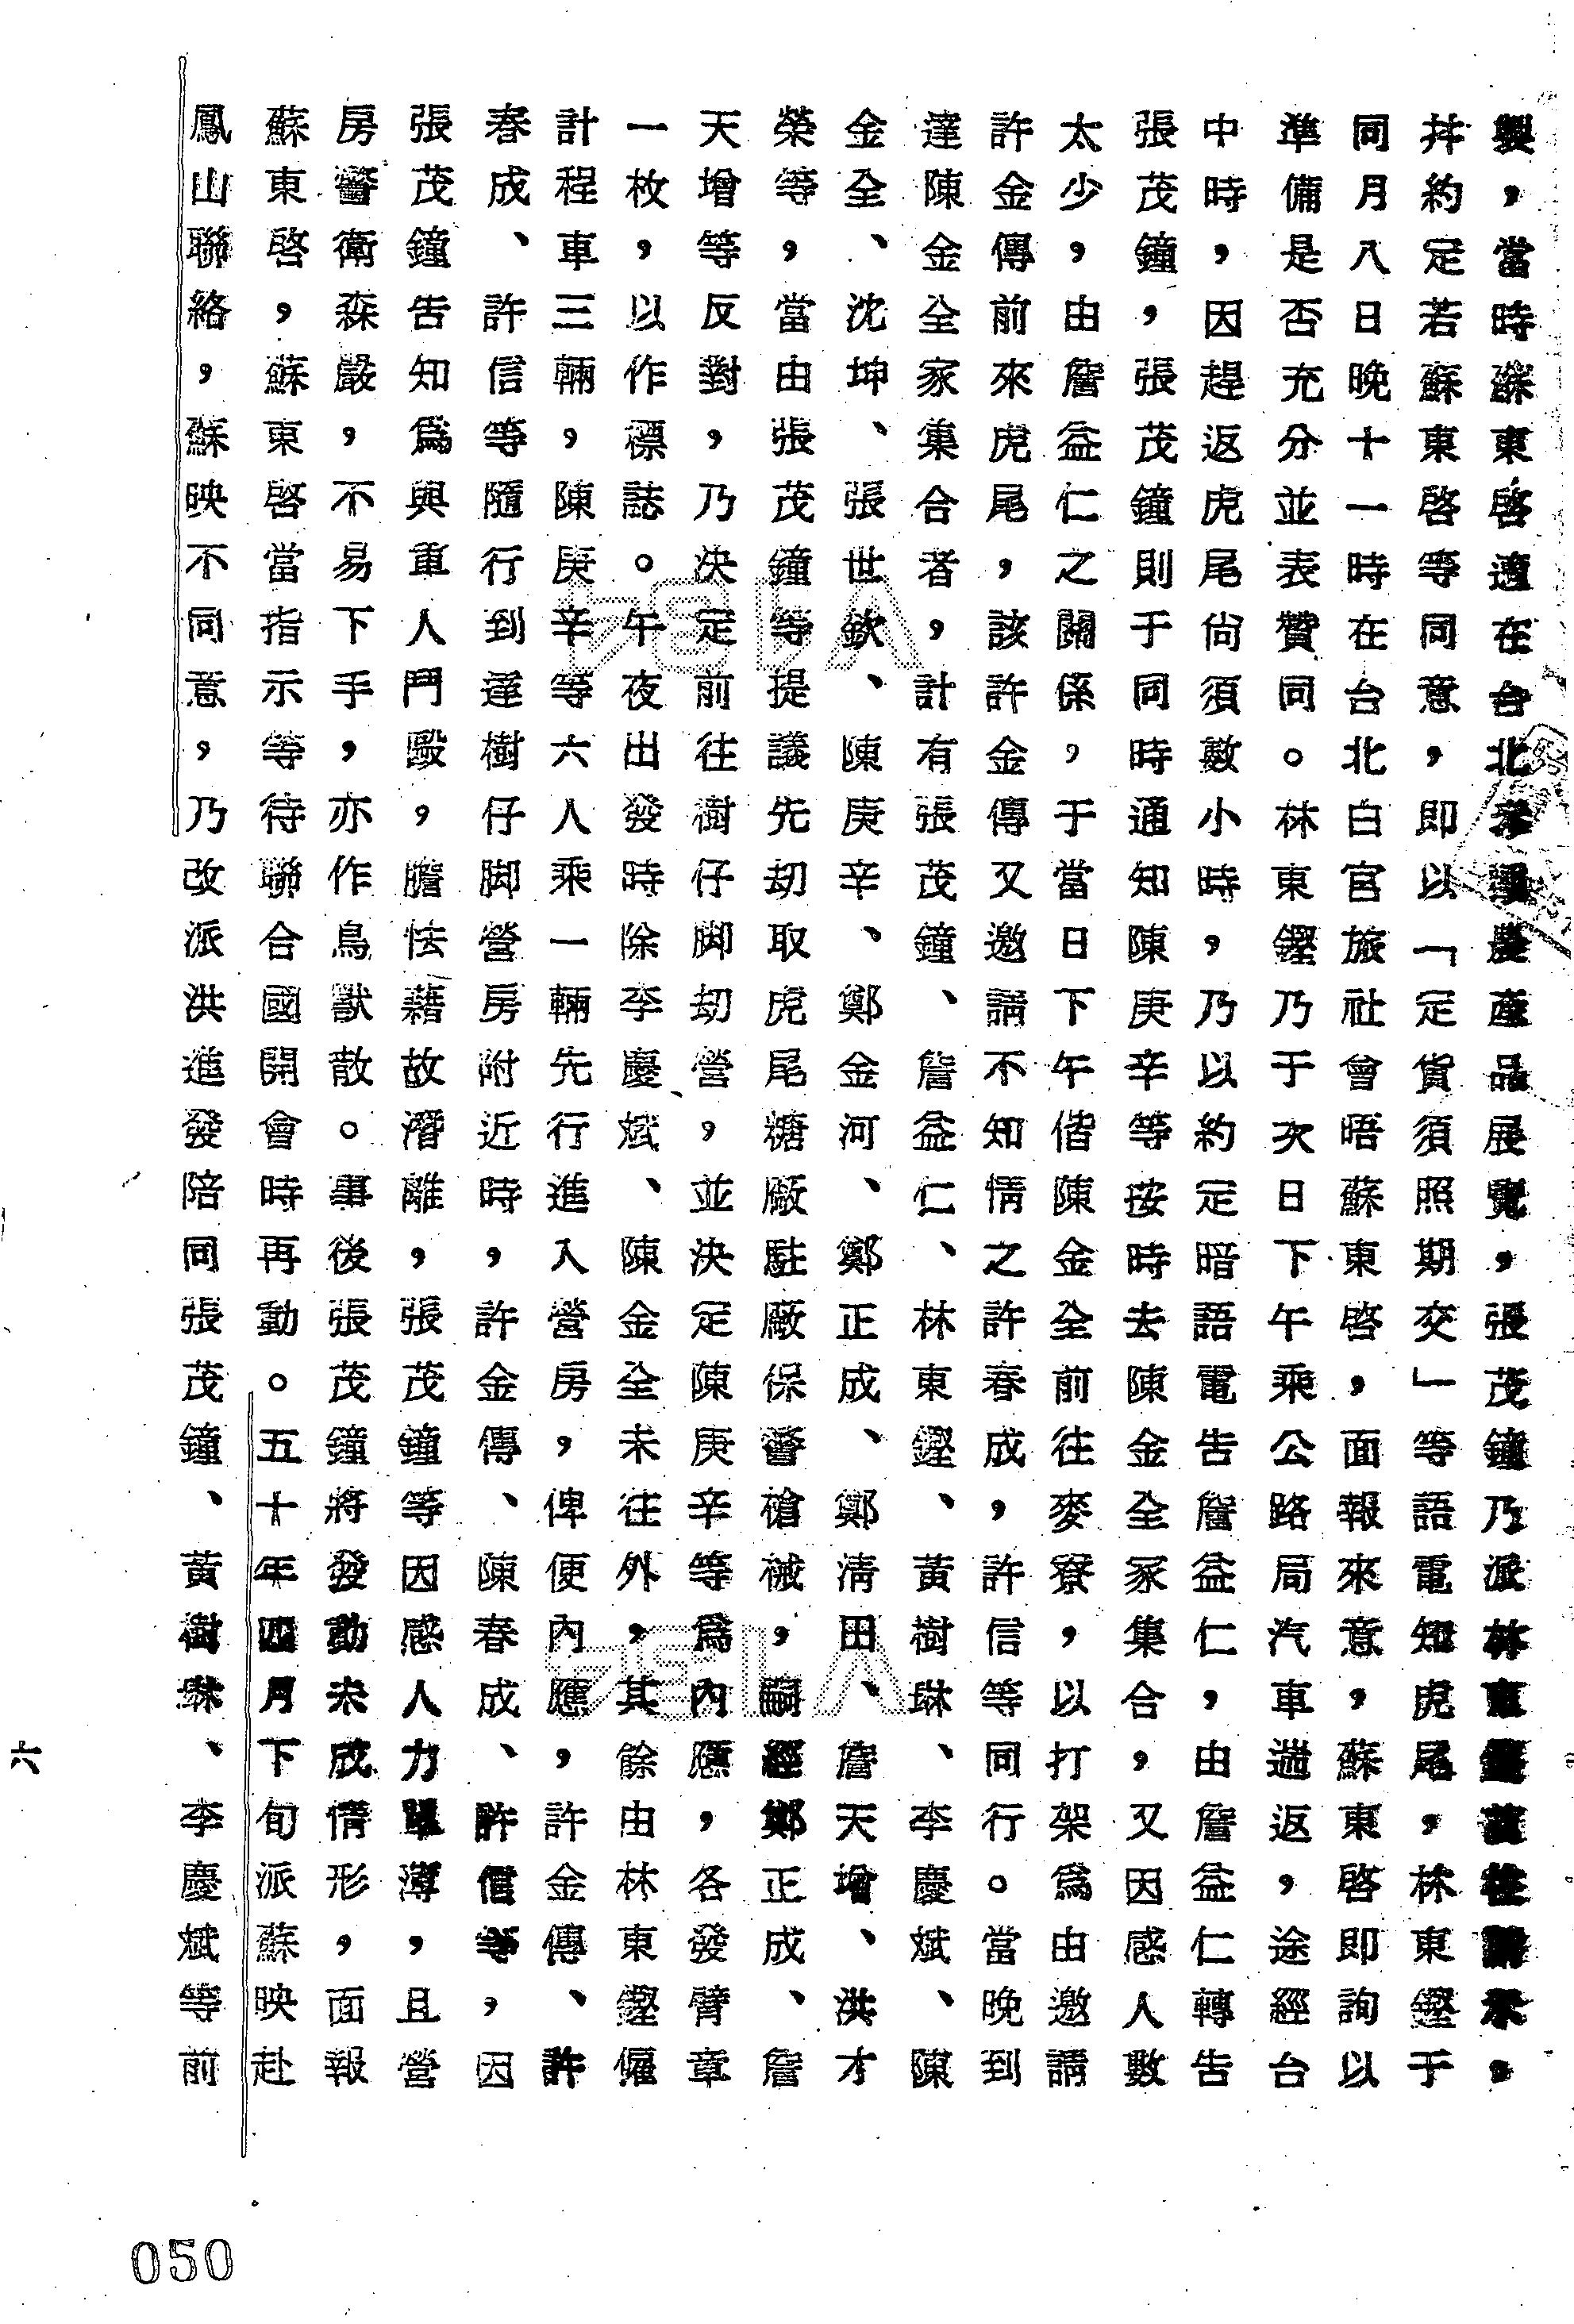 製,當時蘇東啓適在台北參觀農產品展覽,張茂鐘乃派林東鏗前往請示,
幷約定若蘇東啓等同意,即以「定貨須照期交」等語電知虎尾,林東鏗于
同月八日晚十一時在台北白宮旅社會晤蘇東啓,面報來意,蘇東啓即詢以
準備是否充分並表贊同。林東鏗乃于次日下午乘公路局汽車遄返,途經台
中時,因趕返虎尾尙須數小時,乃以約定暗語電告詹益仁,由詹益仁轉告
張茂鐘,張茂鐘則于同時通知陳庚辛等按時去陳金全家集合,又因感人數
太少,由詹益仁之關係,于當日下午偕陳金全前往麥寮,以打架爲由邀請
許金傳前來虎尾,該許金傳又邀請不知情之許春成,許信等同行。當晚到
達陳金全家集合者,計有張茂鐘、詹益仁、林東鏗、黃樹琳、李慶斌、陳
金全、沈坤、張世欽、陳庚辛、鄭金河、鄭正成、鄭淸田、詹天增、洪才
榮等,當由張茂鐘等提議先刧取虎尾糖廠駐廠保警槍械,嗣經鄭正成、詹
天增等反對,乃決定前往樹仔脚刧營,並決定陳庚辛等爲內應,各發臂章
一枚,以作標誌。午夜出發時除李慶斌、陳金全未往外,其餘由林東鏗僱
計程車三輛,陳庚辛等六人乘一輛先行進入營房,俾便內應,許金傳、許
春成、許信等隨行到達樹仔脚營房附近時,許金傳、陳春成、許信等,因
張茂鐘告知爲與重人鬥毆,膽怯藉故潛離,張茂鐘等因感人力單薄,且營
房警衛森嚴,不易下手,亦作鳥獸散。事後張茂鐘將發動未成情形,面報
蘇東啓,蘇東啓當指示等待聯合國開會時再動。五十年四月下旬派蘇映赴
鳳山聯絡,蘇映不同意,乃改派洪進發陪同張茂鐘、黃樹琳、李慶斌等前
六
050